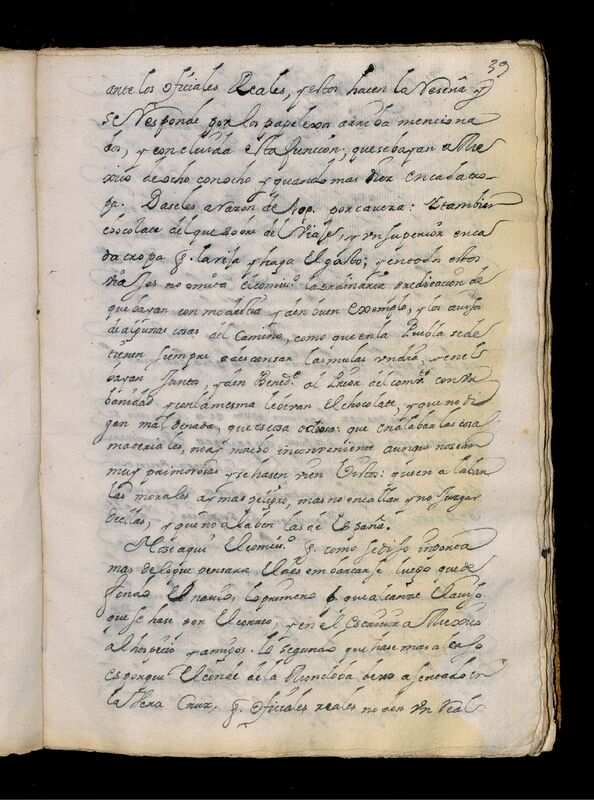 39
ante los oficiales Reales, y estos hacen la Reseña y
se Responde por los papeles arriba menciona
dos, y concluida esta función; que se bayan a Me
xico de ocho con ocho y quando mas diez en cada tro
pa. Daseles a razon de por caveza: Y tambien
chocolate del que sobre del Viaje, y un superior en ca
da tropa q. la rija y haga El gasto; y en todos estos
Viajes no omita El comis.º la ordinaria predicacion de
que bayan con modestia y den buen exemplo, y los avise
de algunas cosas del camino, como que en la Puebla se de
tienen siempre a descansar las mulas un dia, y en el
bayan Junto, y den Bened.e al Prior del com.to con ur
banidad y con la mesma beberan El chocolate, y que no di
gan mal de nada, que es cosa odiosa: que en alabar las cosas
materiales, no ay mucho inconveniente aunque no sean
muy primorosas y se hasen bien Vistos: que en alabar
las morales ay mas peligro, mas no en callar y no Juzgar
de ellas, y que no alaben las de España.
Note aqui El comis.º q. como se dijo importa
mas de lo que pensara El desembarcarse luego que de
fondo El navio, lo primero p. que alcance El aviso
que se hase por El correo, y en el Escrivir a Mexico
al hospicio y amigos. lo segundo que hase mas al caso
es porque El conde de la Moncloba dexo asentado en
la Vera Cruz, q. oficiales reales no den un real